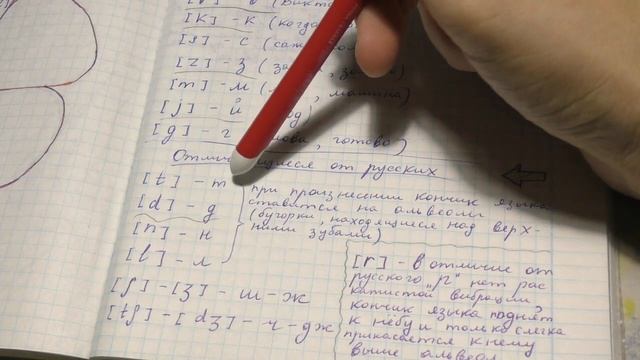 [k] - к (когда
[s] - с
[z] - з
[m] - м машина)
[j] - й
[g] - г готово)
от русских
[t] - т
[d] - д
[n] - н
[l] - л
при произнесении кончик языка
ставится на альвеолы
(бугорки, находящиеся над верх-
ними зубами)
[ʃ] - [ʒ] - ш - ж
[tʃ] - [dʒ] - ч - дж
[r] - в отличие от
русского „р" нет рас
катистой вибрации,
кончик языка поднят
к нёбу и только слегка
прикасается к нему
выше альвеол